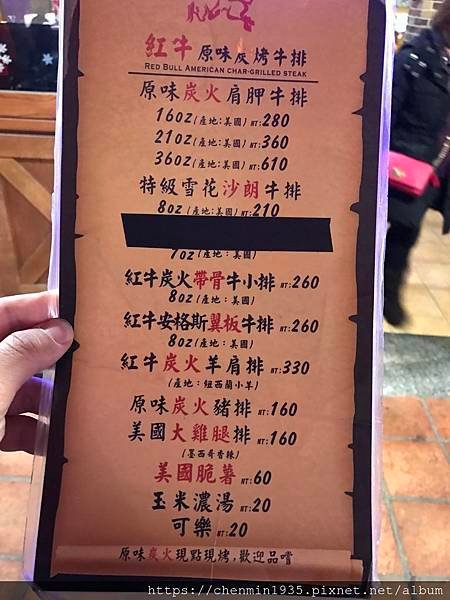 紅牛 原味炭烤牛排
RED BULL AMERICAN CHAR-GRILLED STEAK
原味炭火肩胛牛排
16oz(產地:美國)NT:280
21oz(產地:美國)NT:360
36oz(產地:美國)NT:610
特級雪花沙朗牛排
8oz (產地:美國)NT:210
7oz(產地：美國)
紅牛炭火帶骨牛小排 NT:260
8oz(產地：美國)
紅牛安格斯翼板牛排 NT:260
8oz(產地：美國)
紅牛炭火羊肩排 NT:330
(產地：紐西蘭小羊)
原味炭火豬排 NT:160
美國大雞腿排 NT:160
(墨西哥香辣)
美國脆薯 NT:60
玉米濃湯 NT:20
可樂 NT:20
原味炭火現點現烤,歡迎品嚐
https://chenmin1935.pixnet.net/album